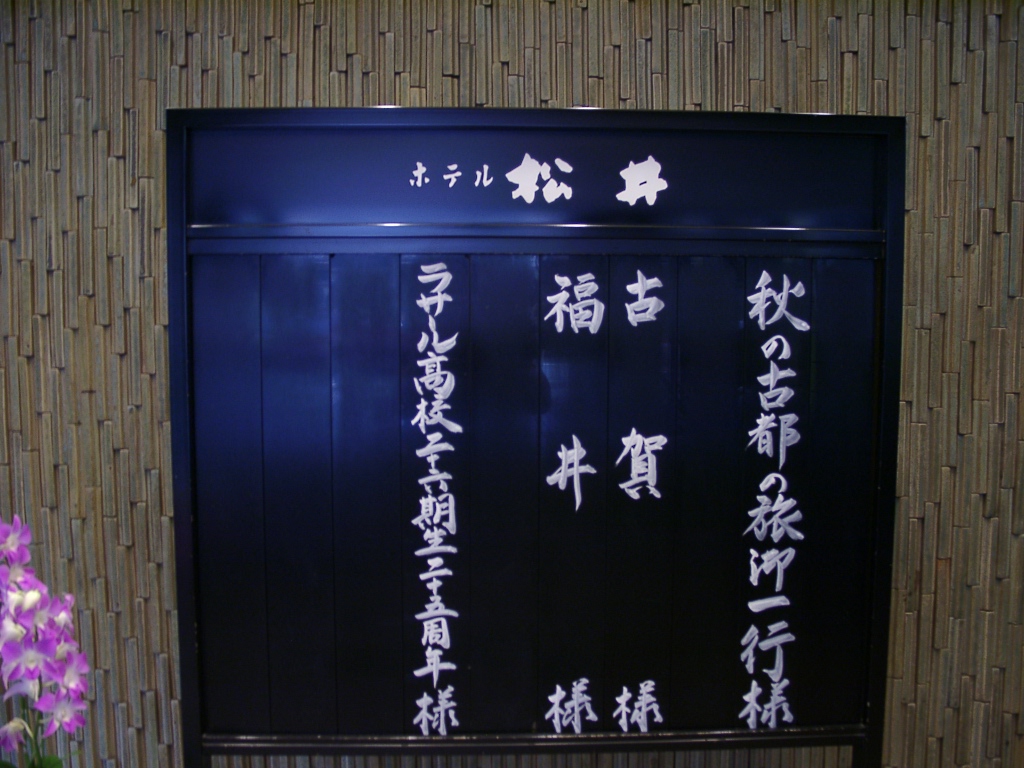 ホテル 松井
秋の古都の旅御一行様
古賀様
福井様
ラサール高校二十六期生二十五周年様